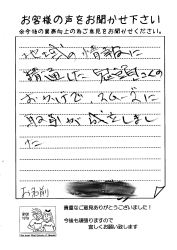 お客様の声をお聞かせ下さい
※今後の業務向上の為ご意見をお聞かせください。
地域の情報に
精通した
おかげで、スムーズに
取引が成立しまし
た
お名前
貴重なご意見ありがとうございました!
今後も頑張りますので
宜しくお願い致します